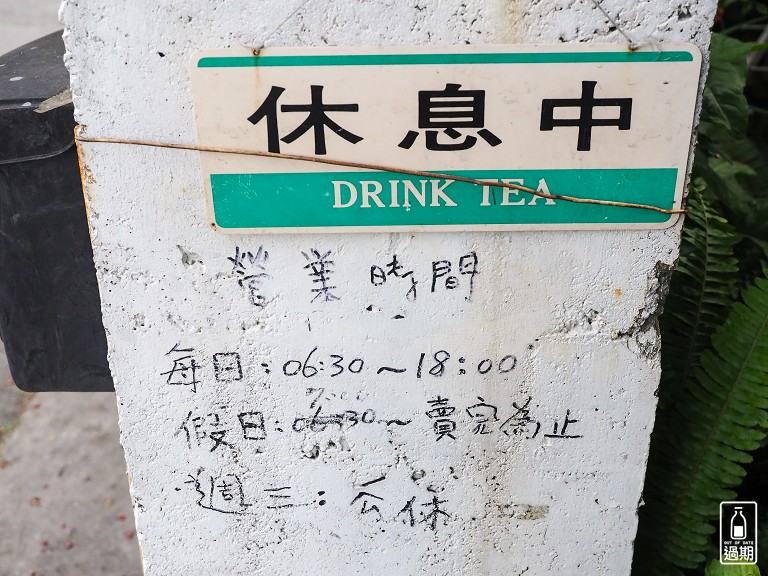 休息中
DRINK TEA
營業時間
每日:06:30~18:00
7:00
假日:06:30~賣完為止
週三:公休
OUT OF DATE
過期